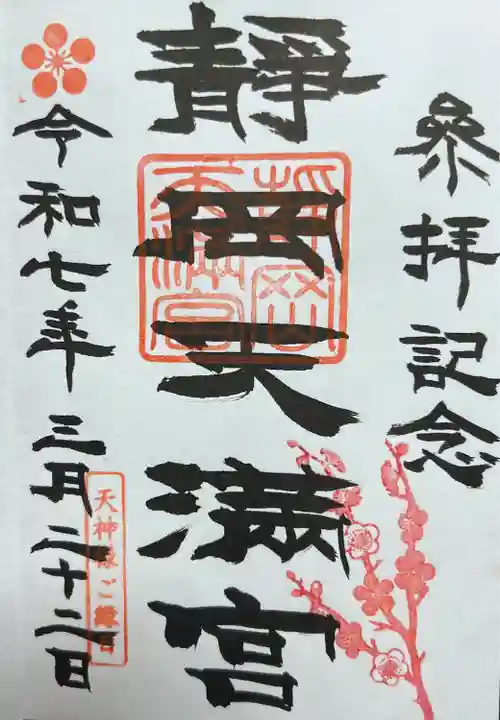 參拝記念
靜岡天満宮
令和七年三月二十二日
天神様ご縁日